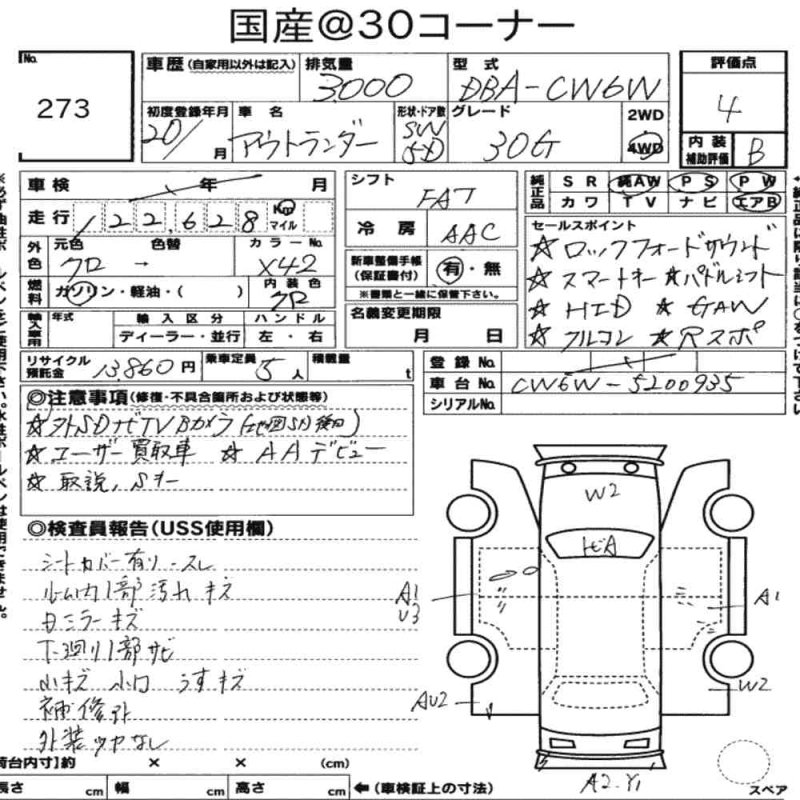 国産@30コーナー
No. 273
車歴 (自家用以外は記入) 排気量 3000 型式 DBA-CW6W 評価点 4
初度登録年月 20/ 月 車名 アウトランダー 形状・ドア数 SW 5D グレード 30G 2WD 4WD 内装補助評価 B
車検 年 月
走行 122,628 Km マイル
シフト FAT
冷房 AAC
純正品 SR 純AW PS PW
カワ TV ナビ エアB
外色 元色 クロ 色替 → カラーNo. X42
燃料 ガソリン・軽油・( ) 内装色 クロ
輸入車用 年式 輸入区分 ハンドル
ディーラー・並行 左・右
新車整備手帳 (保証書付) 有・無
※書類と一緒に保管下さい。
名義変更期限
月 日
セールスポイント
☆ロックフォードサウンド
☆スマートキー ☆パドルシフト
☆HID ☆GAW
☆フルコン ☆Rスポ
リサイクル預託金 13,860円 乗車定員 5人 積載量 t
登録No.
車台No. CW6W-5200935
シリアルNo.
◎注意事項 (修復・不具合箇所および状態等)
☆外SDナビTVBカメラ(地図SD後日)
☆ユーザー買取車 ☆AAデビュー
☆取説、Sキー
◎検査員報告 (USS使用欄)
シートカバー有り スレ
小山内1部汚れ キズ
日ミラーキズ
下廻り1部サビ
小キズ 小凹 うすキズ
補修跡
外装ツヤなし
W2
トビA
A1
U3
A1
AU2
W2
A2.Y1
スペア
荷台内寸】約 × × (cm)
長さ cm 幅 cm 高さ cm ←(車検証上の寸法)